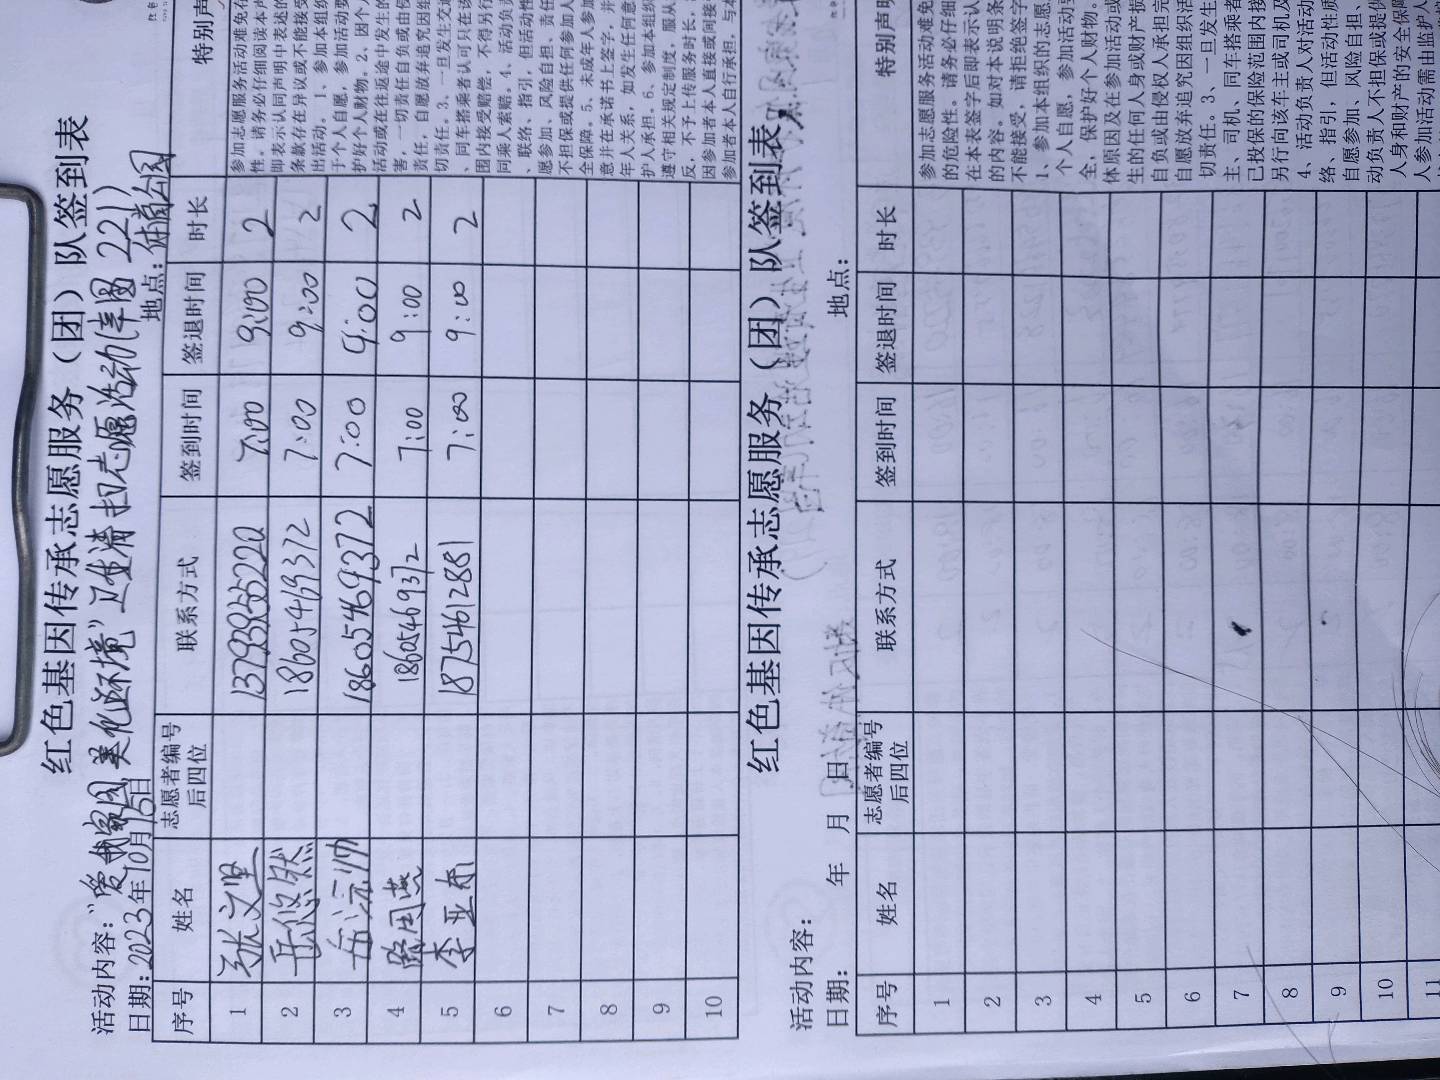 红色基因传承志愿服务（团）队签到表
活动内容：“爱我家园 美化环境”卫生清扫志愿活动(丰园221)
日期：2023年10月15日 地点：
序号 姓名 志愿者编号后四位 联系方式 签到时间 签退时间 时长 特别声
1 张文坚 7:00 9:00 2
2 岳悠然 18605469372 7:00 9:00 2
3 18605469372 7:00 9:00 2
4 路田燕 18605469372 7:00 9:00 2
5 李亚南 18754612881 7:00 9:00 2
6
7
8
9
10
参加志愿服务活动难免存
性。请务必仔细阅读本声
即表示认同声明中表述的
条款存在异议或不能接受
出活动。1、参加本组织
于个人自愿，参加活动要
护好个人财物。2、因个人
活动或在往返途中发生的
害，一切责任自负或由侵
责任，自愿放弃追究因组
切责任。3、一旦发生交通
、同车搭乘者认可只在该
围内接受赔偿，不得另行
同乘人索赔。4、活动负责
、联络、指引，但活动性
愿参加、风险自担、责任
不担保或提供任何参加人
全保障。5、未成年人参加
意并在承诺书上签字，并
年人关系，如发生任何意
护人承担。6、参加本组织
遵守相关规定制度，服从
反，不予上传服务时长，
因参加者本人直接或间接
参加者本人自行承担，与本
红色基因传承志愿服务（团）队签到表
活动内容：
日期： 年 月 日 地点：
序号 姓名 志愿者编号后四位 联系方式 签到时间 签退时间 时长 特别声明
1
2
3
4
5
6
7
8
9
10
11
参加志愿服务活动难免
的危险性。请务必仔细
在本表签字后即表示认
的内容。如对本说明条
不能接受，请拒绝签字
1、参加本组织的志愿
个人自愿，参加活动要
全，保护好个人财物。
体原因及在参加活动或
生的任何人身或财产损
自负或由侵权人承担完
自愿放弃追究因组织活
切责任。3、一旦发生
主、司机、同车搭乘者
己投保的保险范围内接
另行向该车主或司机及
4、活动负责人对活动
络、指引，但活动性质
自愿参加、风险自担、
动负责人不担保或提供
人身和财产的安全保障
人参加活动需由监护人